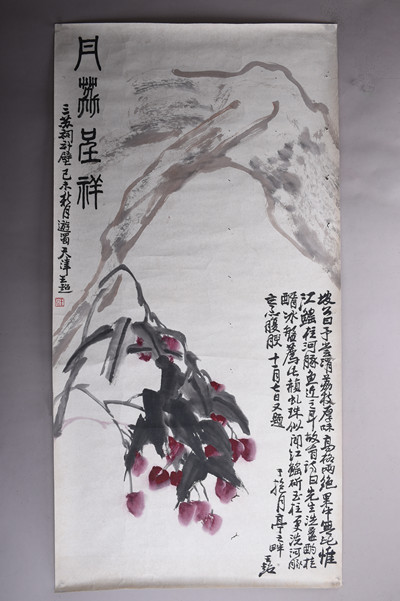 丹荔呈祥
三苏祠补壁 己未秋月遊蜀天津王
坡公曰予尝谓荔枝厚味高格两绝果中无比惟
江鳐柱河豚鱼近之耳故有诗曰先生洗盏酌桂
醑冰盘荐此赪虬珠似闻江鳐斫玉柱更洗河豚
烹腹腴 月七日又题
于抱月亭之畔 王